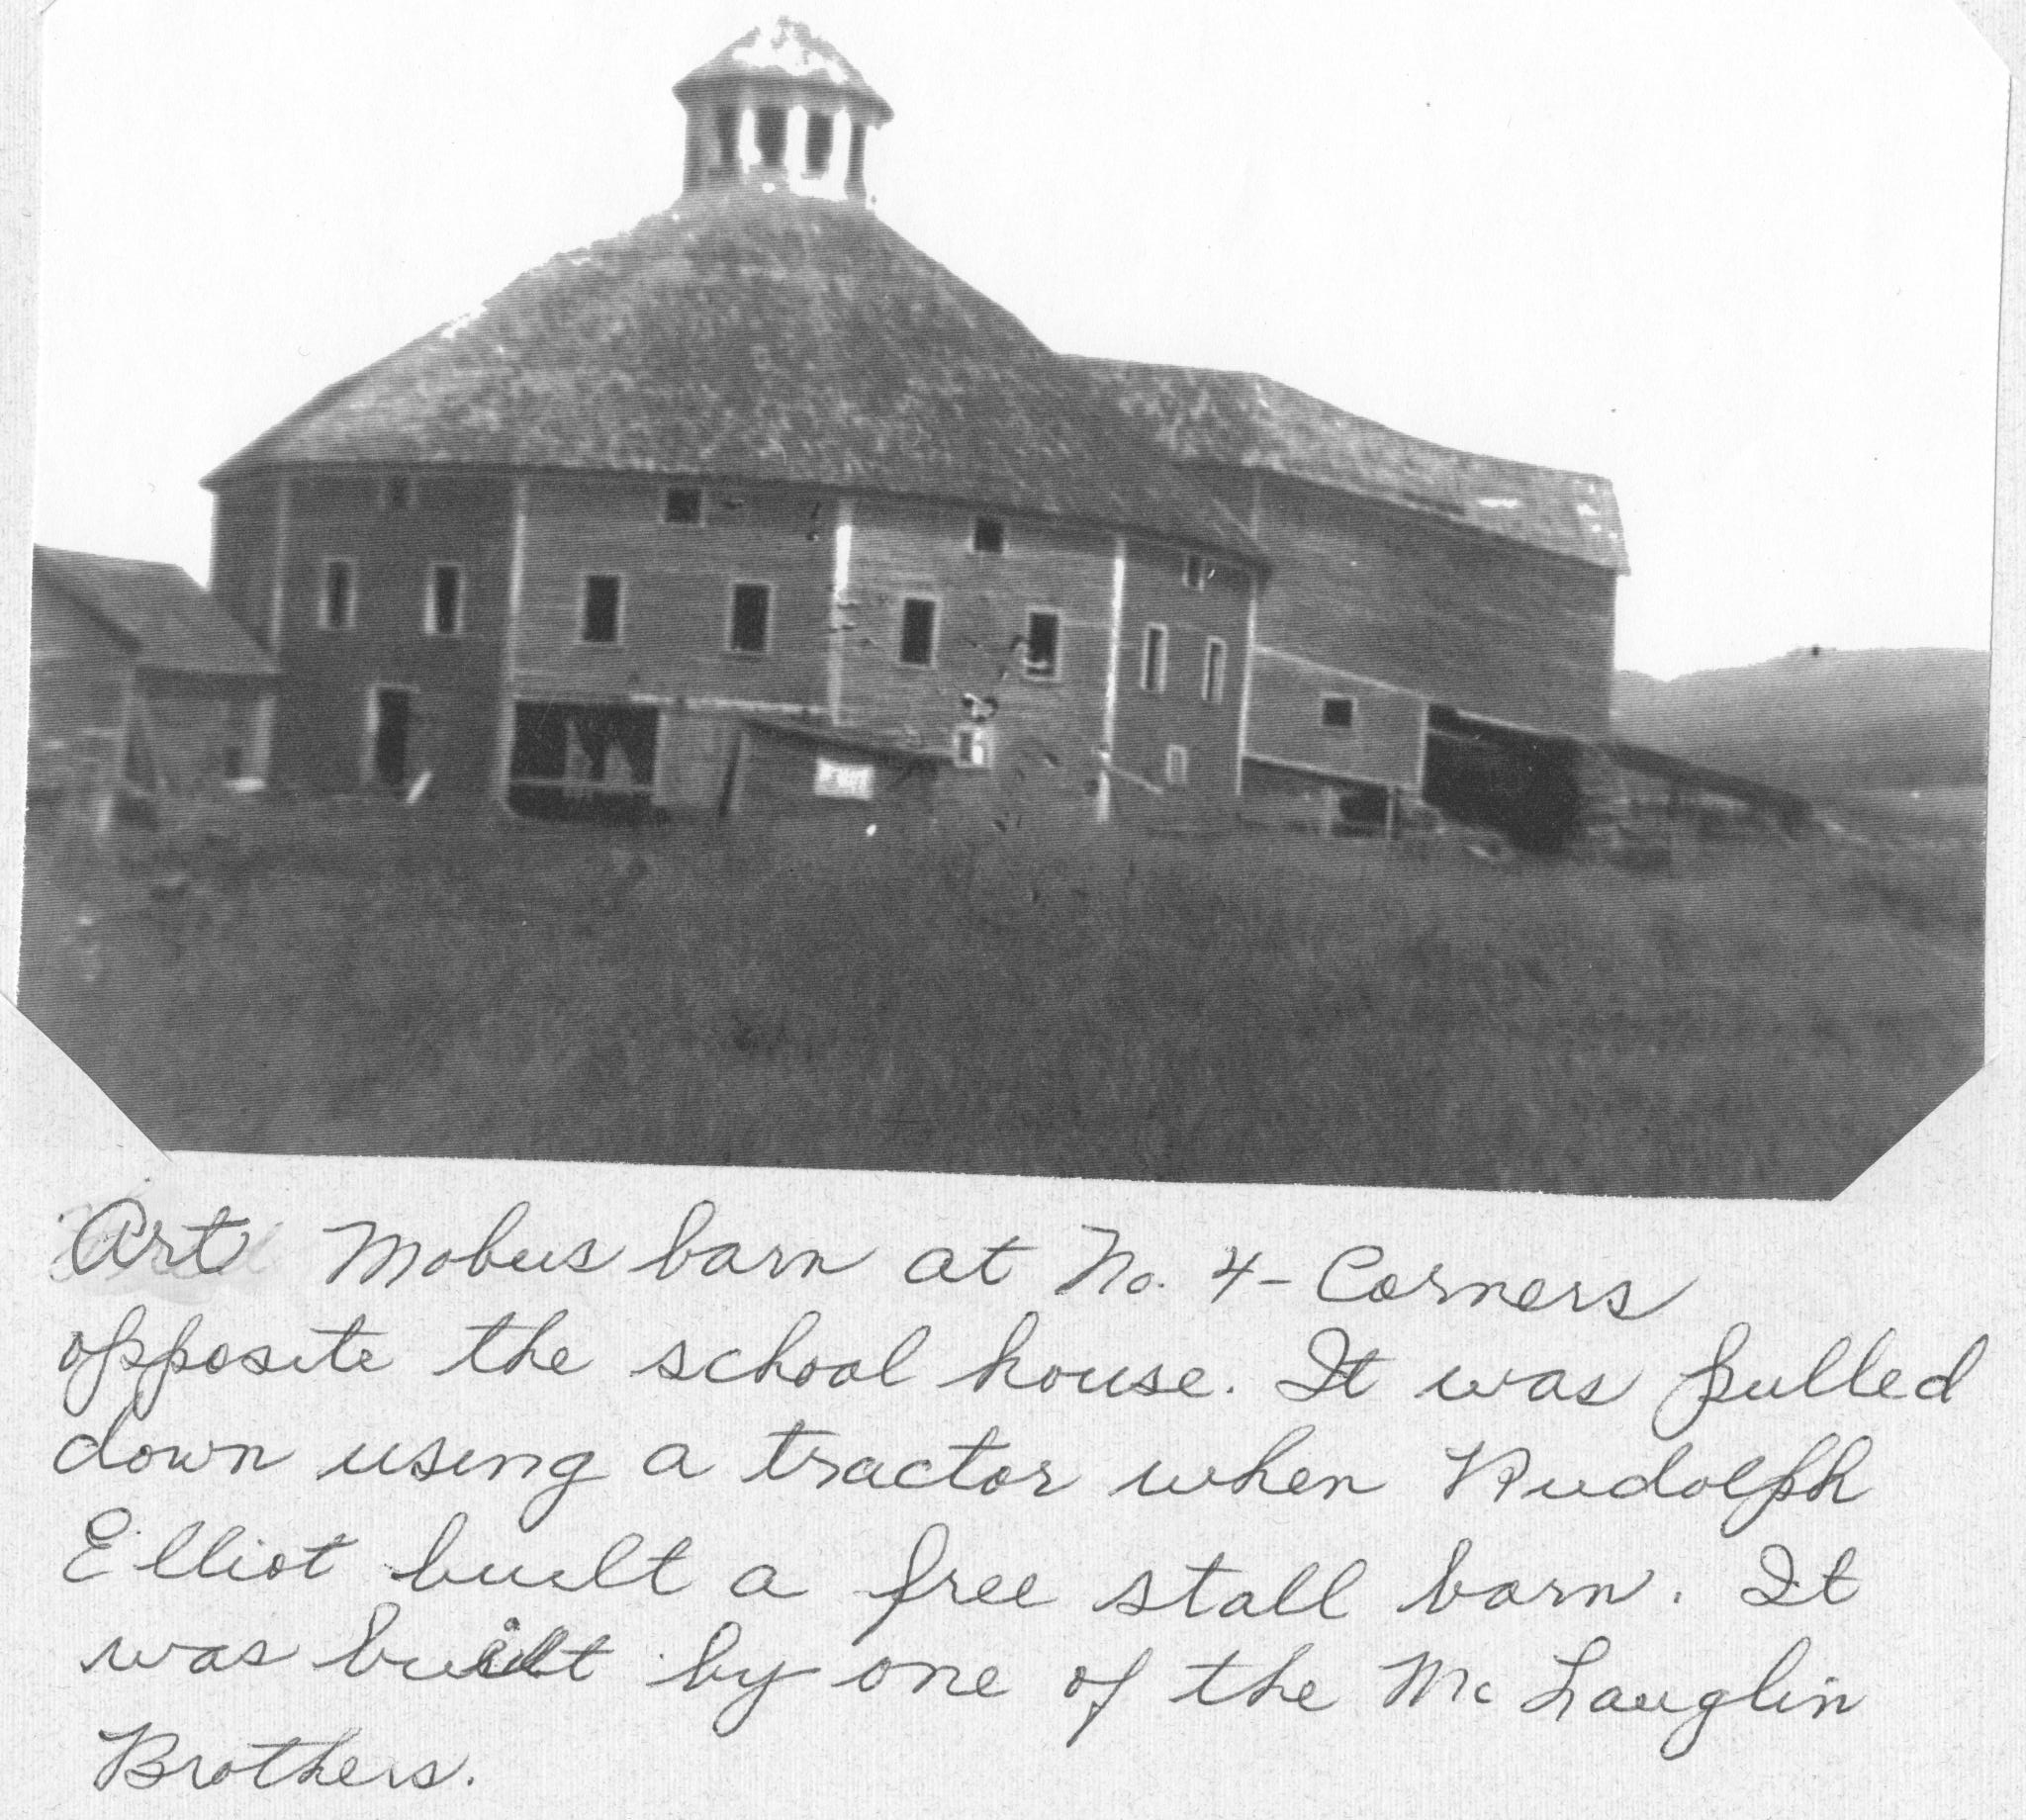 Art Mobus barn at No. 4 - Corners
opposite the school house. It was pulled
down using a tractor when Rudolph
Elliot built a free stall barn. It
was built by one of the Mc Lauglin
Brothers.